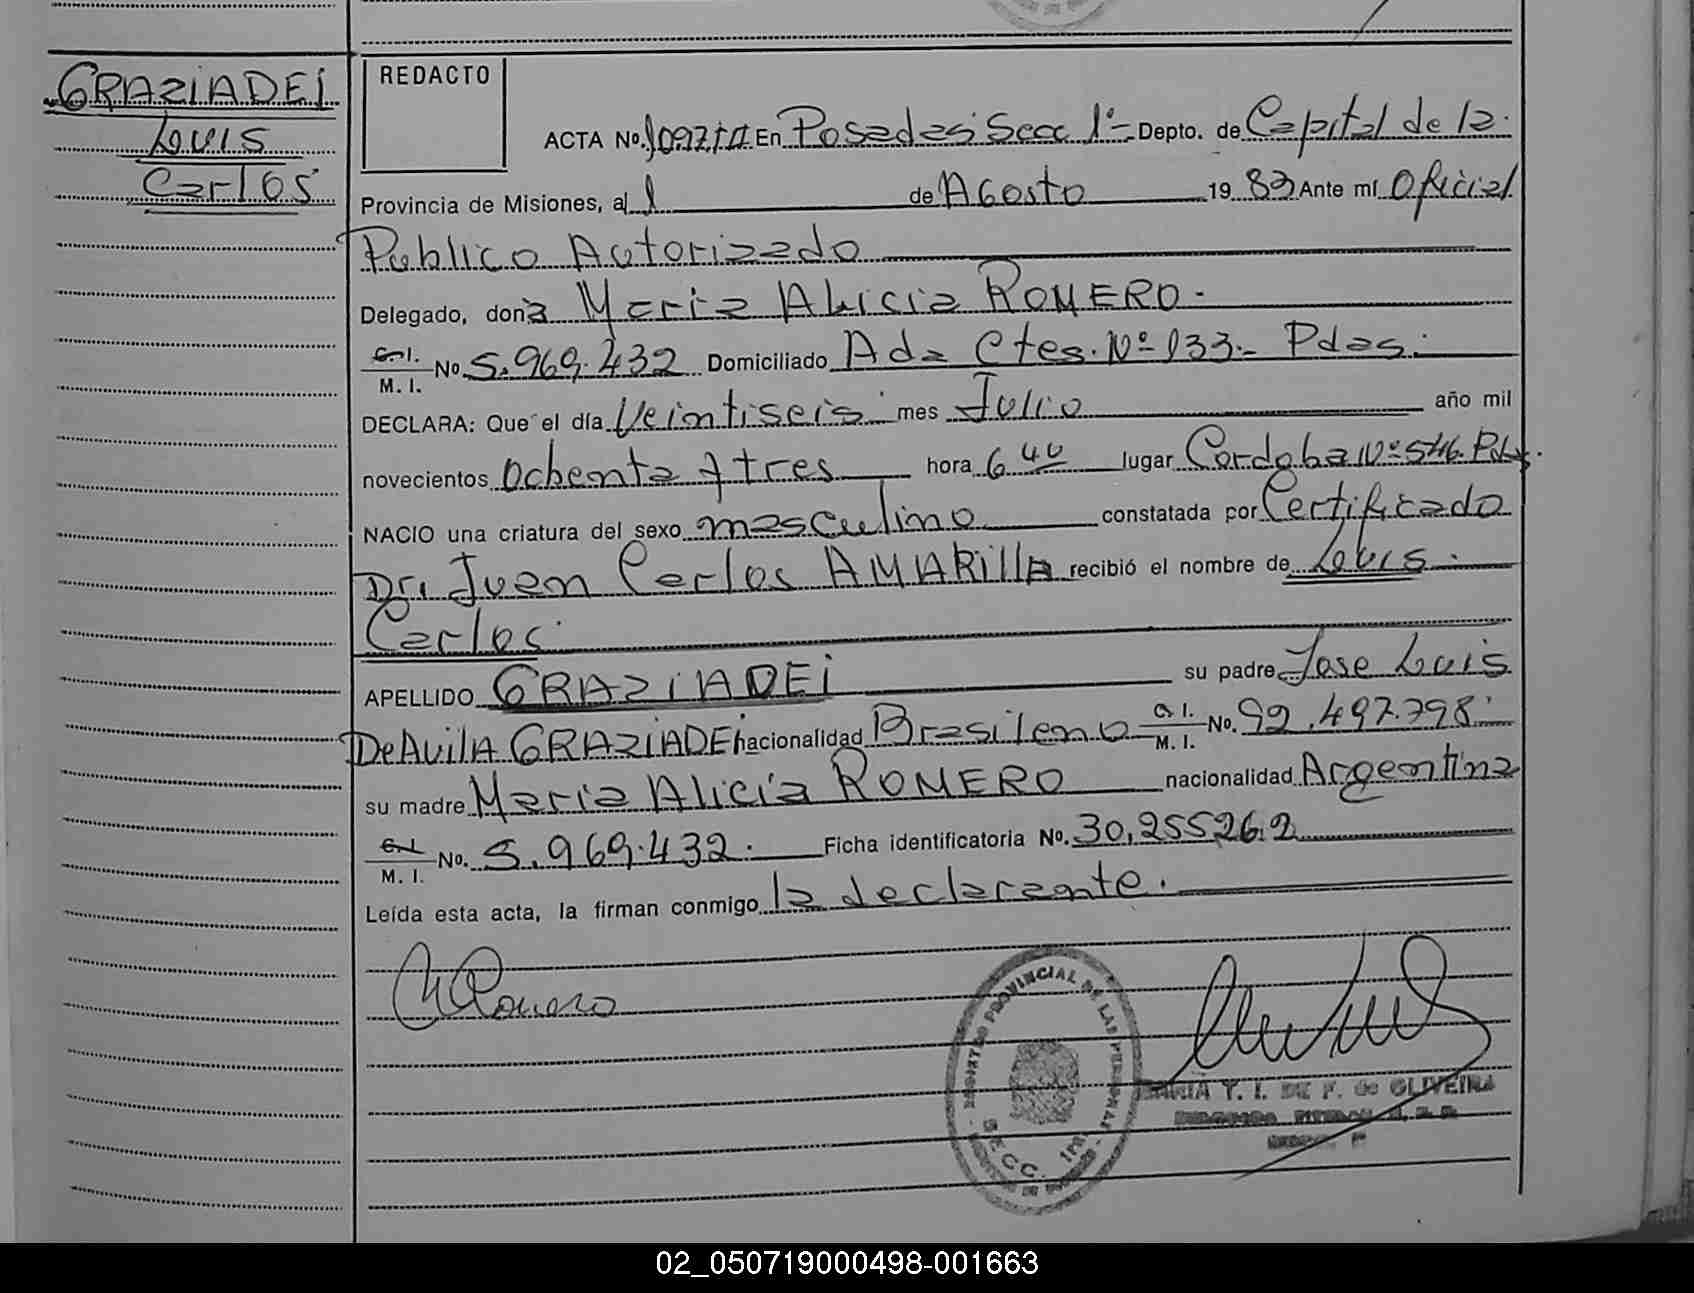 GRAZIADEI
Luis
Carlos
REDACTO
ACTA No. En Posadas Secc 1º- Depto. de Capital de la
Provincia de Misiones, al 1 de Agosto 1983 Ante mí Oficial
Publico Autorizado
Delegado, doña Maria Alicia ROMERO.
C.I. M. I. No 5.969.432 Domiciliado Ada Ctes. Nº 133- Pdas.
DECLARA: Que el día Veintiseis mes Julio año mil
novecientos Ochenta y tres hora 6 40 lugar Cordoba Nº 546. Pdas.
NACIO una criatura del sexo masculino constatada por Certificado
Dr. Juan Carlos AMARILLA recibió el nombre de Luis
Carlos
APELLIDO GRAZIADEI su padre Jose Luis
De AvilA GRAZIADEI nacionalidad Brasileno C.I. M. I. No. 92.497.798
su madre Maria Alicia ROMERO nacionalidad Argentina
C.I. M. I. No. 5.969.432. Ficha identificatoria No. 30,255262
Leída esta acta, la firman conmigo la declarante.
MARomero
REGISTRO PROVINCIAL DE LAS PERSONAS
SECC. 1RA
MARIA Y. I. DE F. de OLIVEIRA
02_050719000498-001663